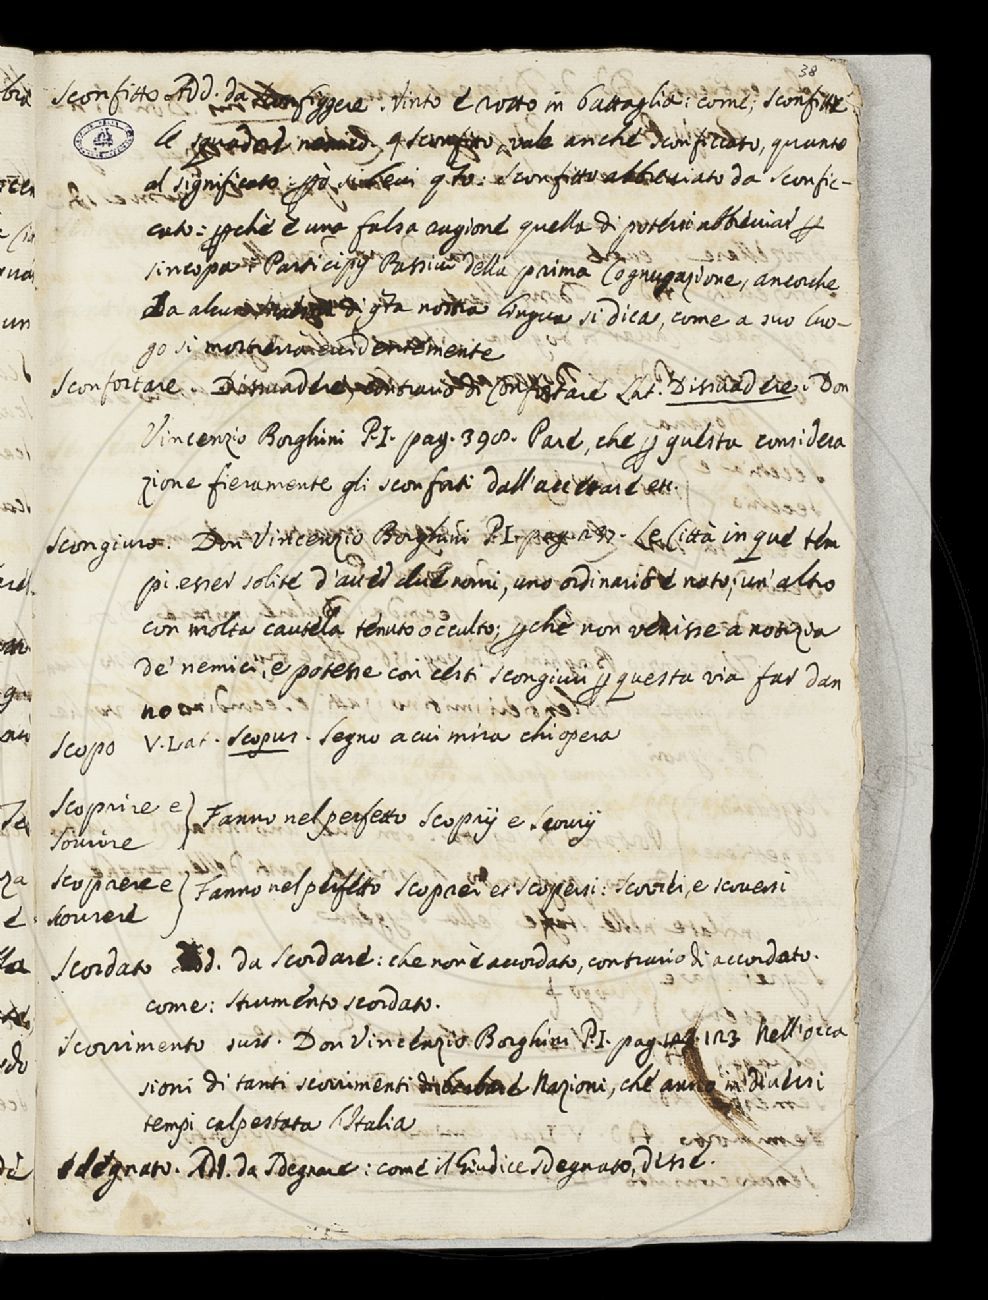 38
Sconfitto Add. da sconfiggere. Vinto e rotto in battaglia: come; sconfitte
le squadre nemiche, sconfitto, vale anche sconficcato, quanto
al significato: sconfitto abbreviato da sconfic-
cato: pche è una falsa ragione quella di potersi abbreviar p
sincopa i Participij Passivi della prima Cognugazione, ancorche
da alcuni di qta nostra lingua si dica, come a suo luo-
go si mostrerà evidentemente
Sconfortare. Dissuadere, contrario di Confortare Lat. Dissuadere. Don
Vincenzio Borghini P.I. pag. 398. Pare, che p questa considera
zione fieramente gli sconforti dall'accettare ett.
Scongiuro. Don Vincenzio Borghini P.I. pag. 137. Le Città in que tem
pi esser solite d'aver due nomi, uno ordinario e noto, un'altro
con molta cautela tenuto occulto; pche non venisse a notizia
de' nemici, e potesse con certi scongiuri p questa via far dan
no
Scopo V. Lat. Scopus. Segno a cui mira chi opera
Scoprire e
Scovrire } Fanno nel perfetto Scoprij e Scovrij
Scoprere e
scovrere } Fanno nel perfetto Scoprei e scopersi: scovrei, e scoversi
Scordato Add. da Scordare: che non è accordato, contrario di accordato.
come: strumento scordato.
Scorrimento sust. Don Vincenzio Borghini P.I. pag. 123 Nell'occa
sioni di tanti scorrimenti di barbare Nazioni, che anno in diversi
tempi calpestata l'Italia
Sdegnato. Add. da Sdegnare: come il Giudice sdegnato, disse.